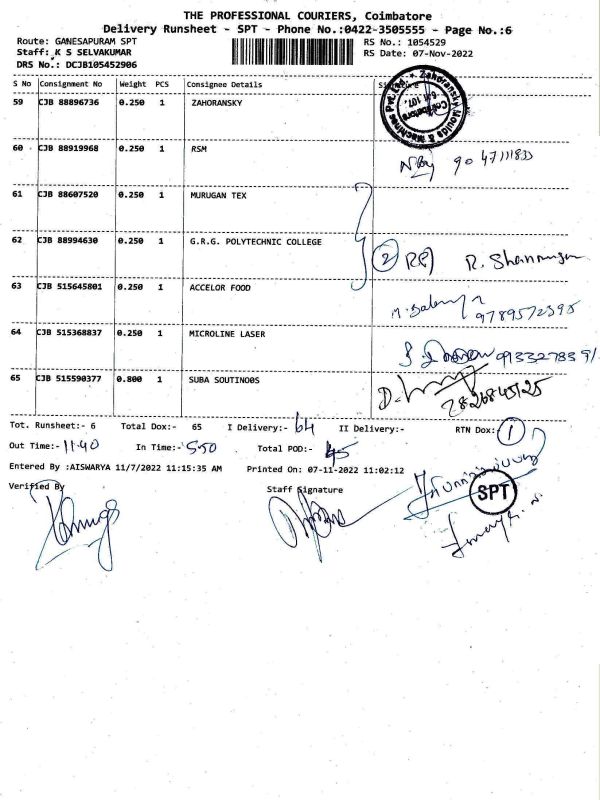 THE PROFESSIONAL COURIERS, Coimbatore
Delivery Runsheet - SPT - Phone No.:0422-3505555 - Page No.:6
Route: GANESAPURAM SPT
RS No.: 1054529
Staff: K S SELVAKUMAR
RS Date: 07-Nov-2022
DRS No.: DCJB105452906
S No Consignment No Weight PCS Consignee Details
59 CJB 88896736 0.250 1 ZAHORANSKY
Zahoransky Moulds & Machines Pvt. Ltd. Coimbatore
60 CJB 88919968 0.250 1 RSM
61 CJB 88607520 0.250 1 MURUGAN TEX
62 CJB 88994630 0.250 1 G.R.G. POLYTECHNIC COLLEGE
2
63 CJB 515645801 0.250 1 ACCELOR FOOD
9789572395
64 CJB 515368837 0.250 1 MICROLINE LASER
65 CJB 515590377 0.800 1 SUBA SOUTINO0S
Tot. Runsheet:- 6 Total Dox:- 65 I Delivery:- 64 II Delivery:- RTN Dox: 1
Out Time:- 11.40 In Time:- 5.50 Total POD:- 45
Entered By :AISWARYA 11/7/2022 11:15:35 AM Printed On: 07-11-2022 11:02:12
Verified By
Staff Signature
SPT